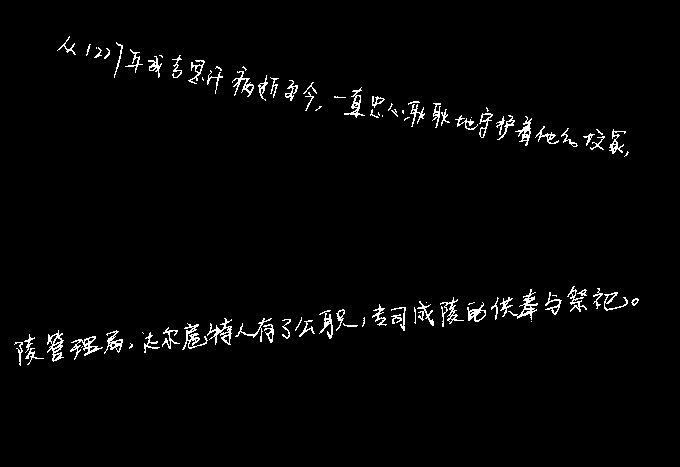 从1227年成吉思汗病逝至今,一直忠心耿耿地守护着他的坟冢,
陵管理局,达尔扈特人有了公职,专司成陵的供奉与祭祀。